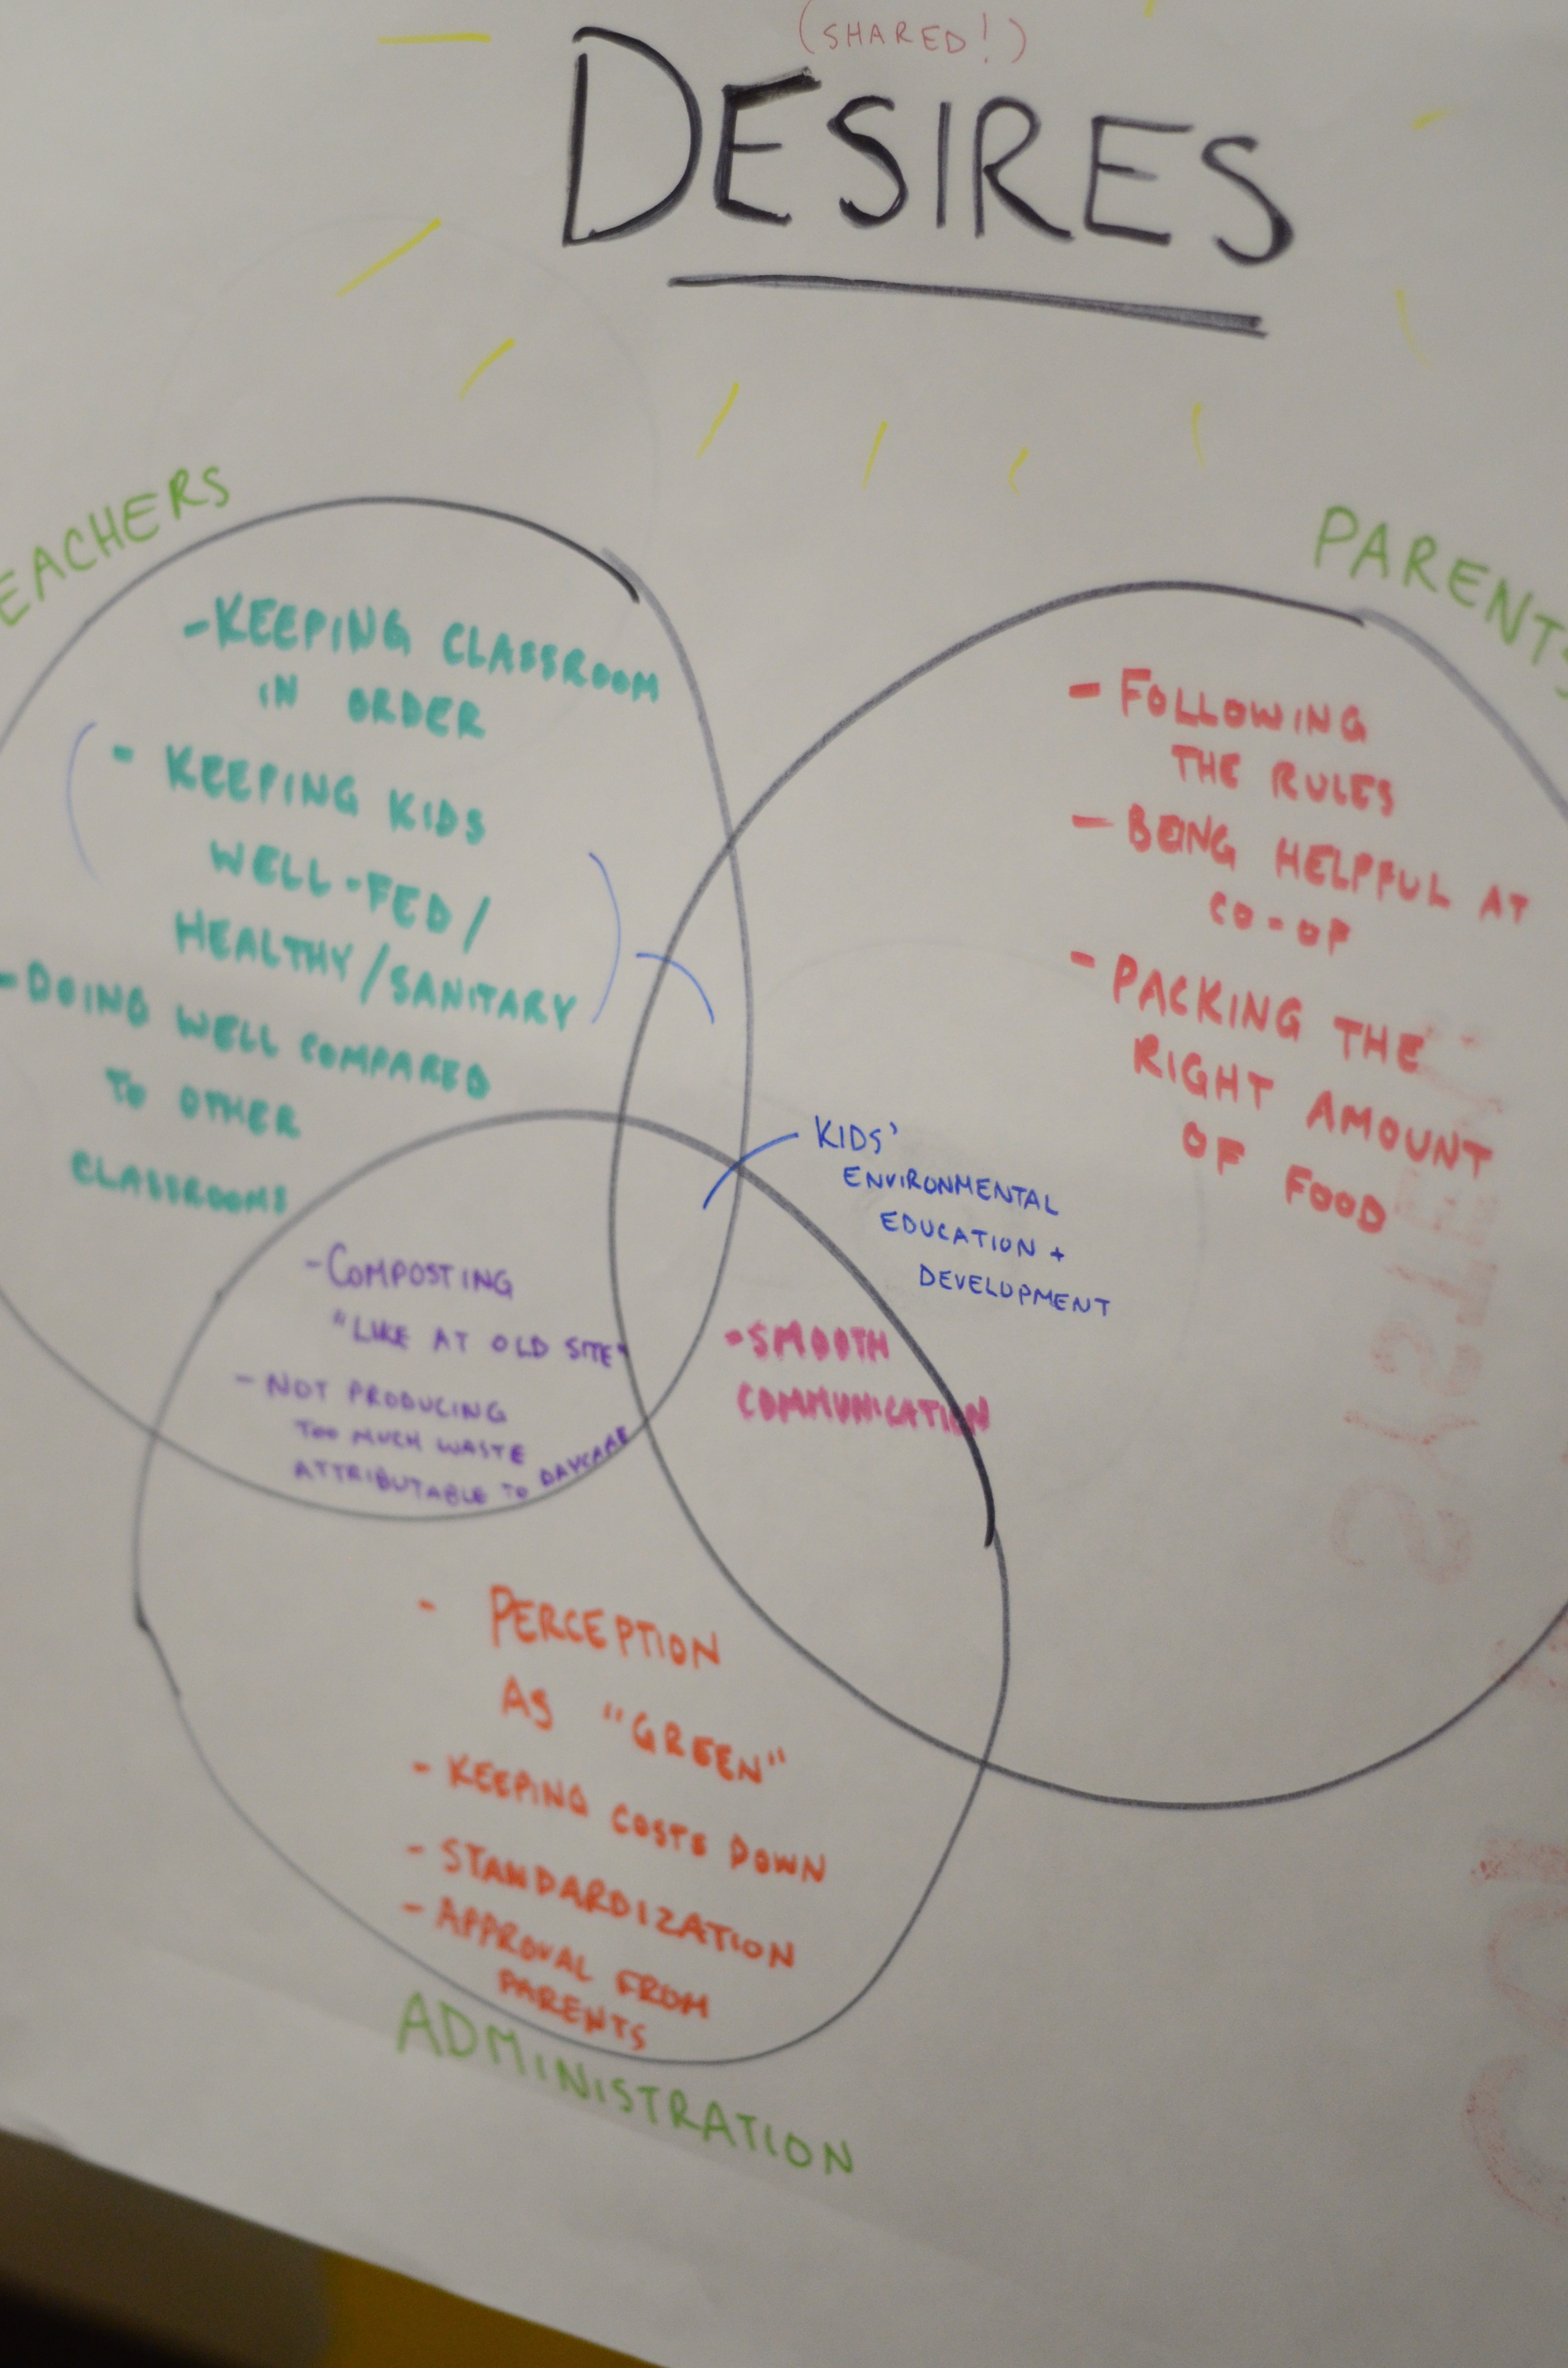 (SHARED!)
DESIRES
EACHERS
- KEEPING CLASSROOM
IN ORDER
- KEEPING KIDS
WELL-FED/
HEALTHY/SANITARY
- DOING WELL COMPARED
TO OTHER
CLASSROOMS
PARENTS
- FOLLOWING
THE RULES
- BEING HELPFUL AT
CO-OP
- PACKING THE
RIGHT AMOUNT
OF FOOD
KIDS'
ENVIRONMENTAL
EDUCATION +
DEVELOPMENT
- COMPOSTING
"LIKE AT OLD SITE"
- NOT PRODUCING
TOO MUCH WASTE
ATTRIBUTABLE TO DAYCARE
- SMOOTH
COMMUNICATION
- PERCEPTION
AS "GREEN"
- KEEPING COSTS DOWN
- STANDARDIZATION
- APPROVAL FROM
PARENTS
ADMINISTRATION